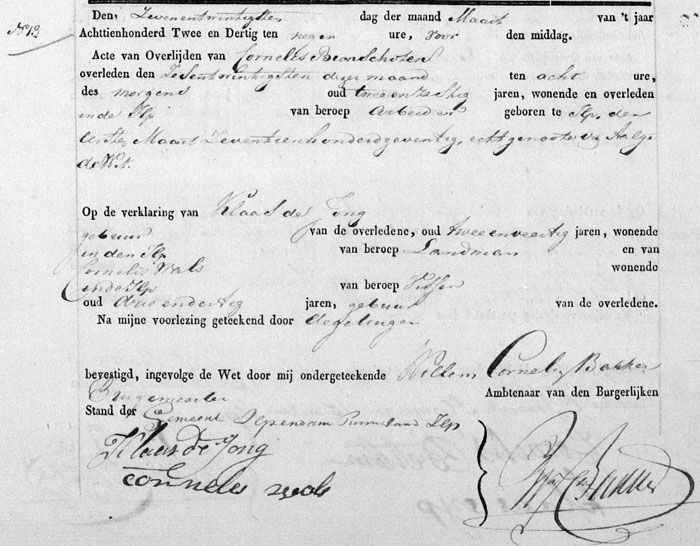 N°13
Den Zevenentwintigsten dag der maand Maart van 't jaar
Achttienhonderd Twee en Dertig ten negen ure, voor den middag.
Acte van Overlijden van Cornelis
overleden den dezer maand ten acht ure,
des morgens oud tweeenzestig jaren, wonende en overleden
in de Ilp van beroep Arbeider geboren te Ilp, den
Maart Zeventienhonderdzeventig, echtgenoote van
de Wit.
Op de verklaring van Klaas de Jong
gebuur van de overledene, oud tweeenveertig jaren, wonende
in den Ilp van beroep Landman en van
Cornelis wonende
in de Ilp van beroep Visser
oud drieendertig jaren, gebuur van de overledene.
Na mijne voorlezing geteekend door
bevestigd, ingevolge de Wet door mij ondergeteekende Willem Cornelisz Bakker
Burgemeester Ambtenaar van den Burgerlijken
Stand der Gemeent Ilpendam Purmerland Ilp
Klaas De Jong
Cornelis